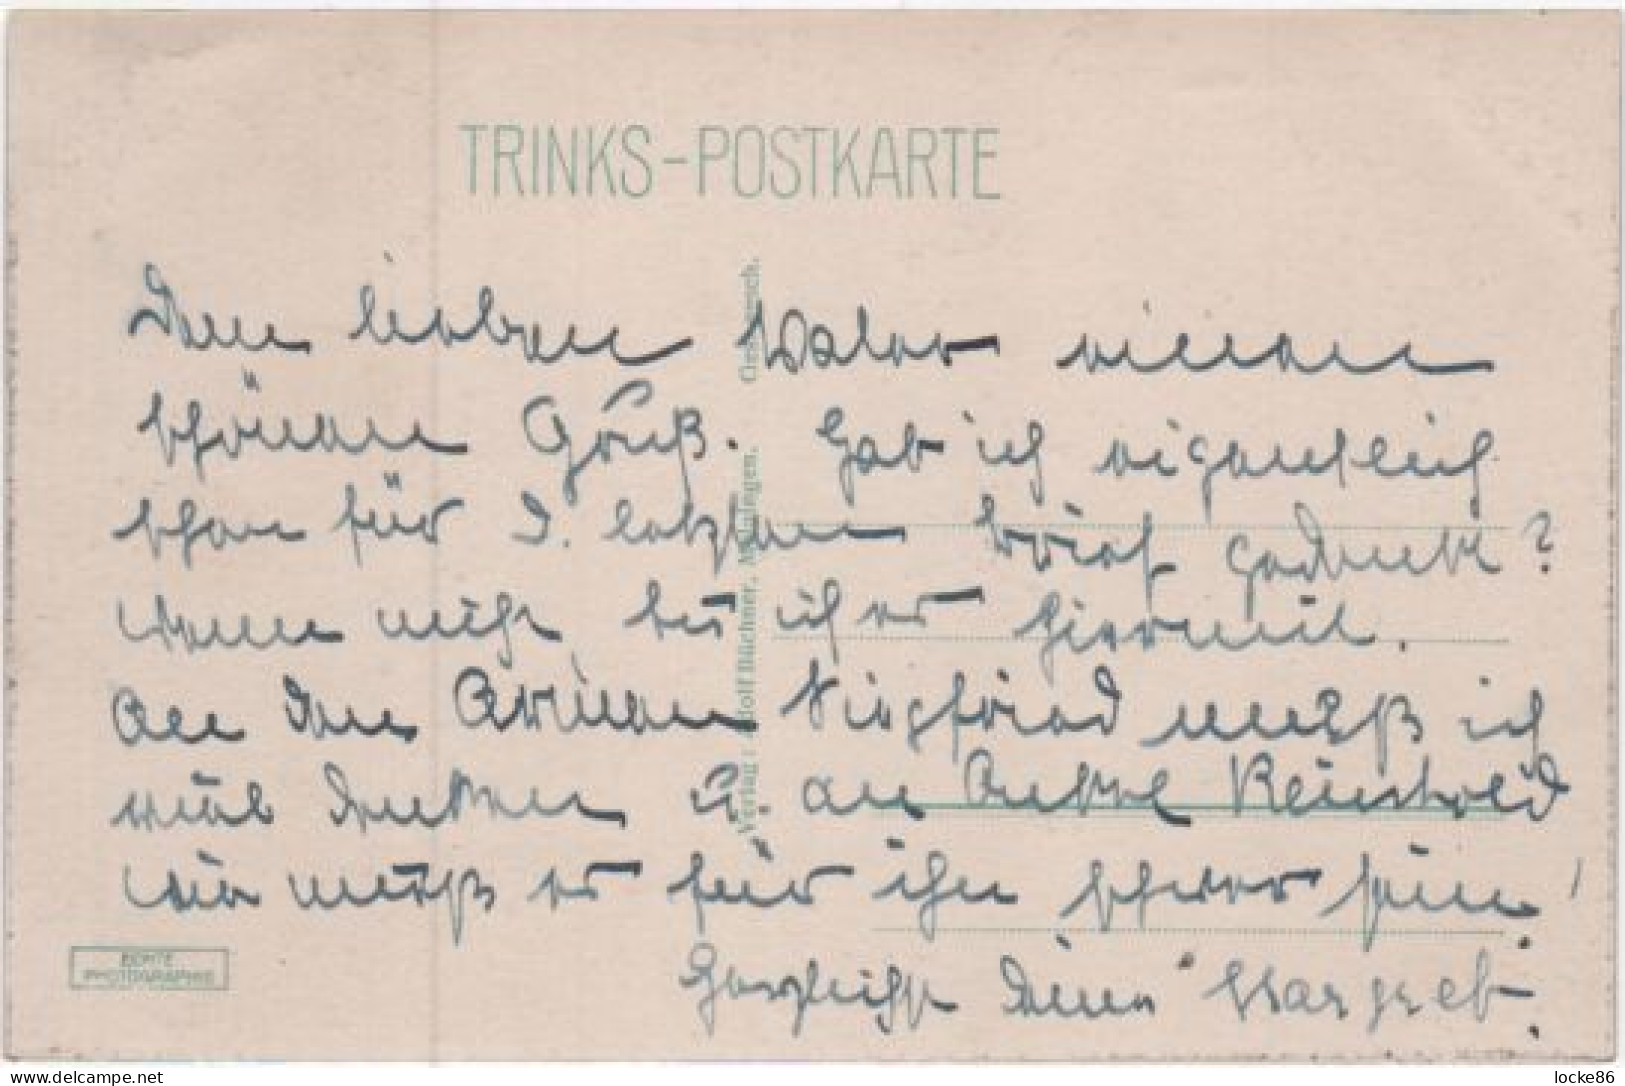 TRINKS-POSTKARTE
Dem lieben Vater einen
schönen Gruß. Hab ich eigentlich
schon für d. letzten Brief gedankt?
Wenn nicht, tu ich es hiermit.
An den Armen Siegfried muß ich
viel denken u. an Onkel Reinhold
wie muß es für ihn schwer sein!
Herzlichst Deine Margret.
Verlag: Adolf Büchner, Meiningen. Ges. gesch.
ECHTE
PHOTOGRAPHIE
delcampe.net
locke86